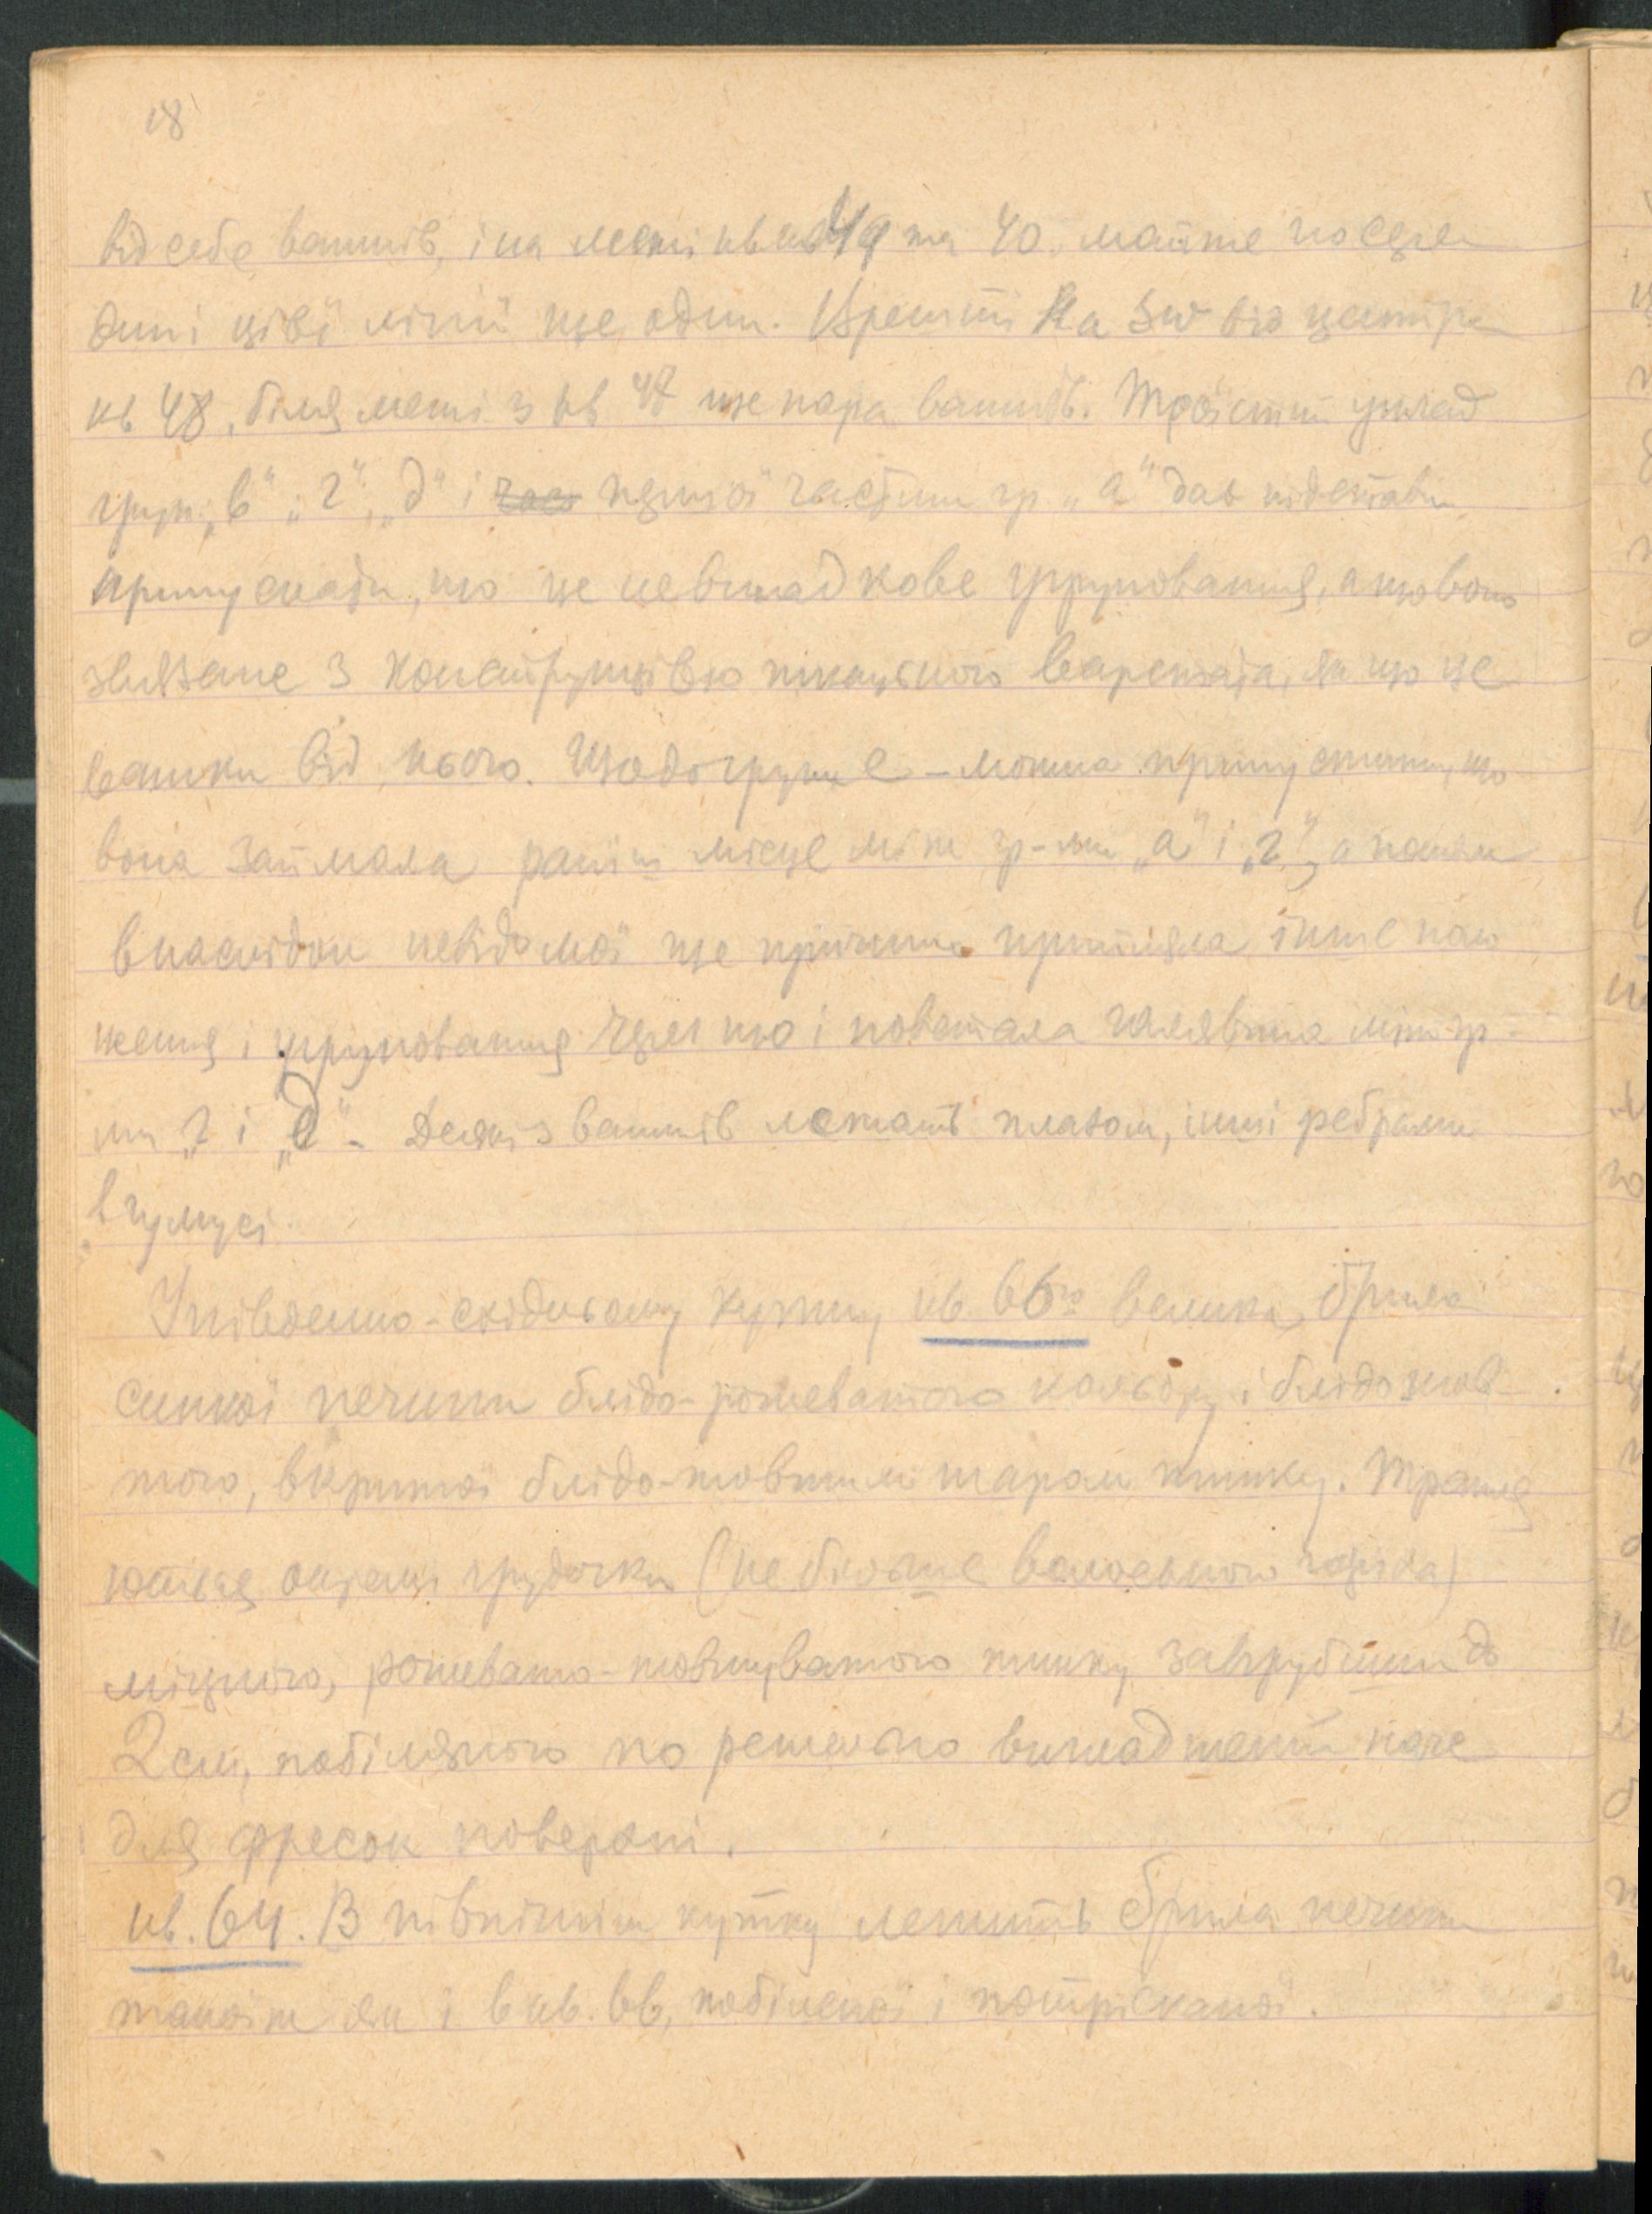 18
від себе важків, і на межі кв кв 49 та 40. майже посере
дині цієї лінії ще один. Врешті На SW від центра
кв 48, біля межі з кв 47 ще пара важків. Троїстий уклад
груп „в" „г", „д" і час першої частини гр „а" дав підстави
припускати, що це невипадкове угруповання, а що воно
звязане з конструкцією ткацького варстата, як що це
важки від нього. Щодо групи е – можна припустити, що
вона займала раніш місце між гр-ми „а" і „г", а потім
внаслідок невідомої ще причини прийняла інше поло
ження і угруповання через що і повстала галявина між гр-
ми „г і „д". Деякі з важків лежать плазом, інші ребрами
в гумусі.
У південно-східньому кутку кв. 66го велика брила
сипкої печини блідо-рожеватого кольору і блідо жов-
того, вкритої блідо-жовтим шаром тинку. Трапля
ються окремі грудочки (не більше волоського горіха)
міцного, рожевато-жовтуватого тинку, завгрубшки до
2 см, побіляного по ретельно вигладженій наче
для фресок поверхні.
кв. 64. В північнім кутку лежить брила печини
такої ж як і в кв. 66, побіленої і потрісканої.